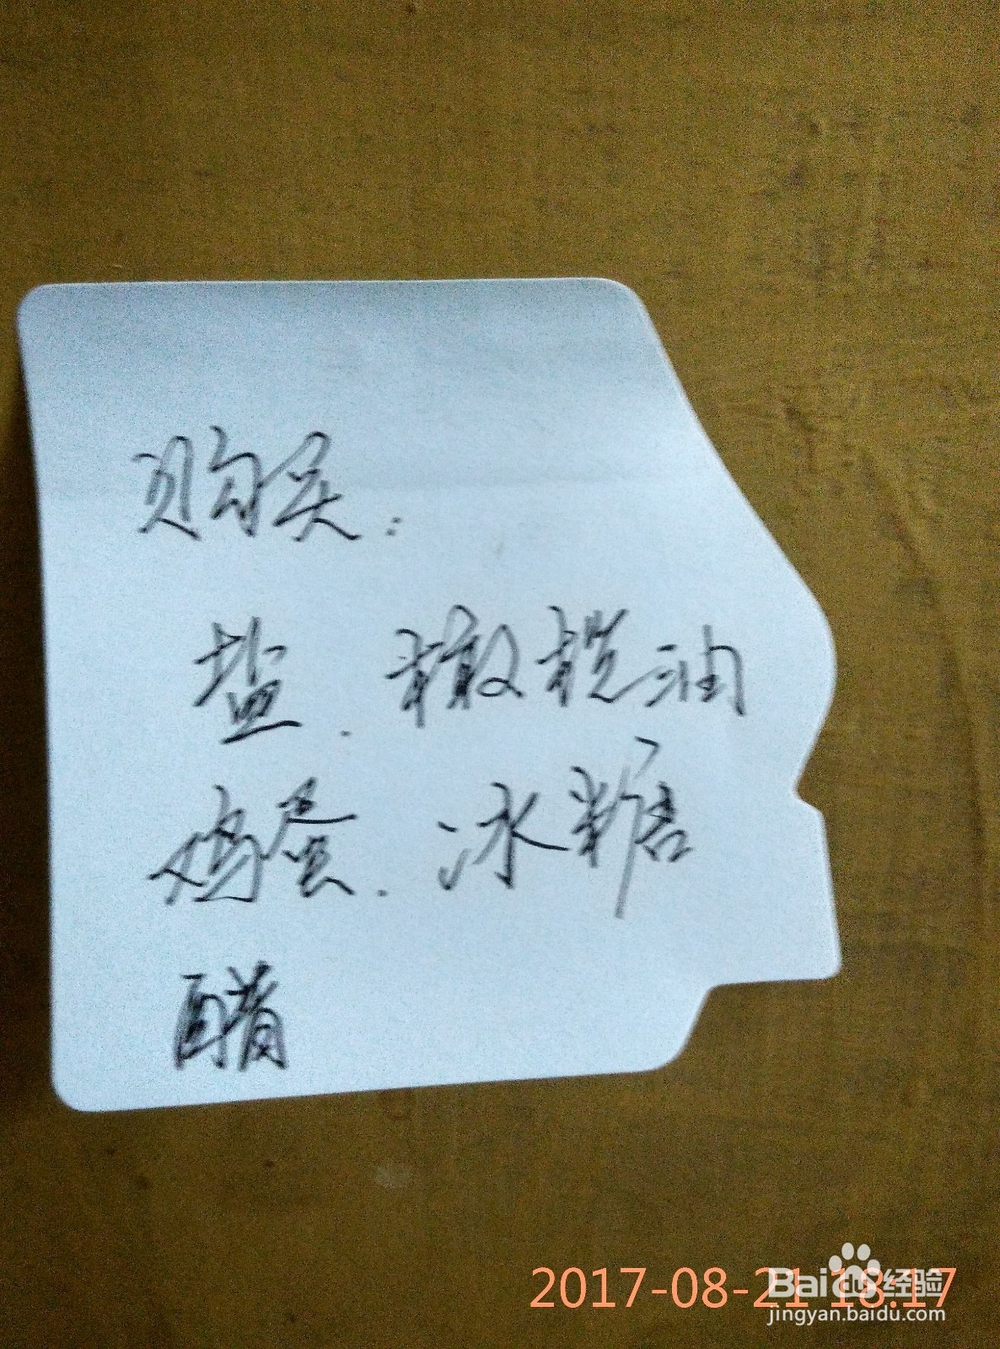 购买:
盐.橄榄油
鸡蛋.冰糖
醋
2017-08-21 18:17
Baidu经验
jingyan.baidu.com